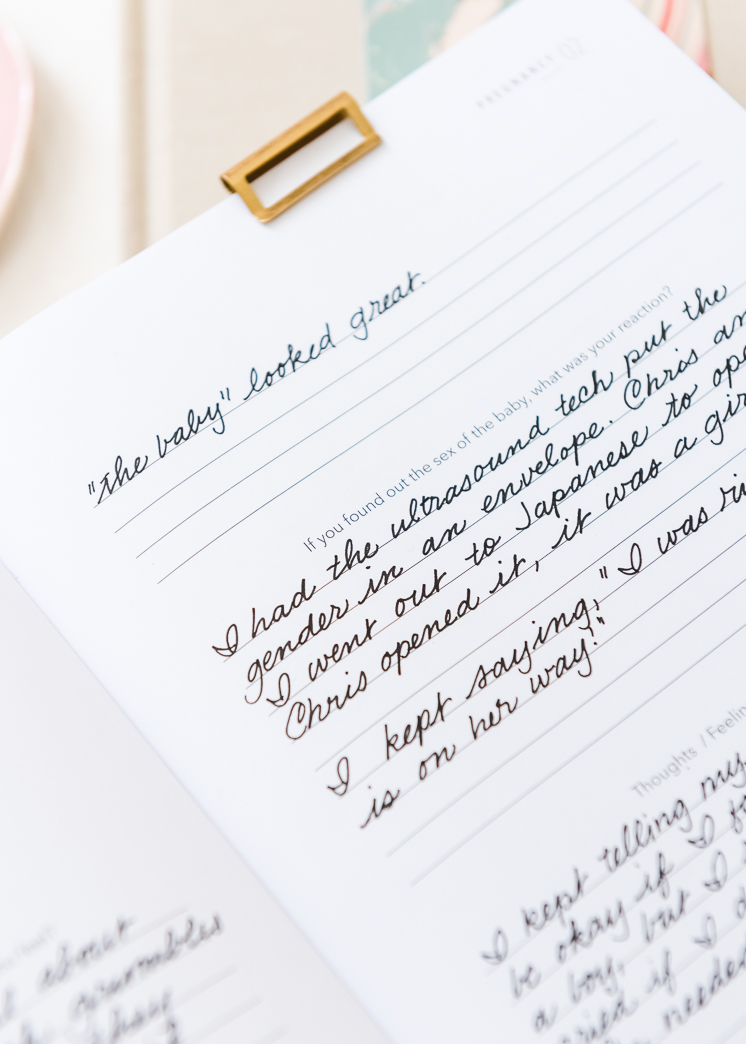 PREGNANCY
"The baby" looked great.
If you found out the sex of the baby, what was your reaction?
I had the ultrasound tech put the
gender in an envelope. Chris an
I went out to Japanese to ope
Chris opened it, it was a gir
I kept saying, "I was ri
is on her way!"
Thoughts / Feelin
I kept telling my
be okay if I
a boy, but I
if I d
needed
about